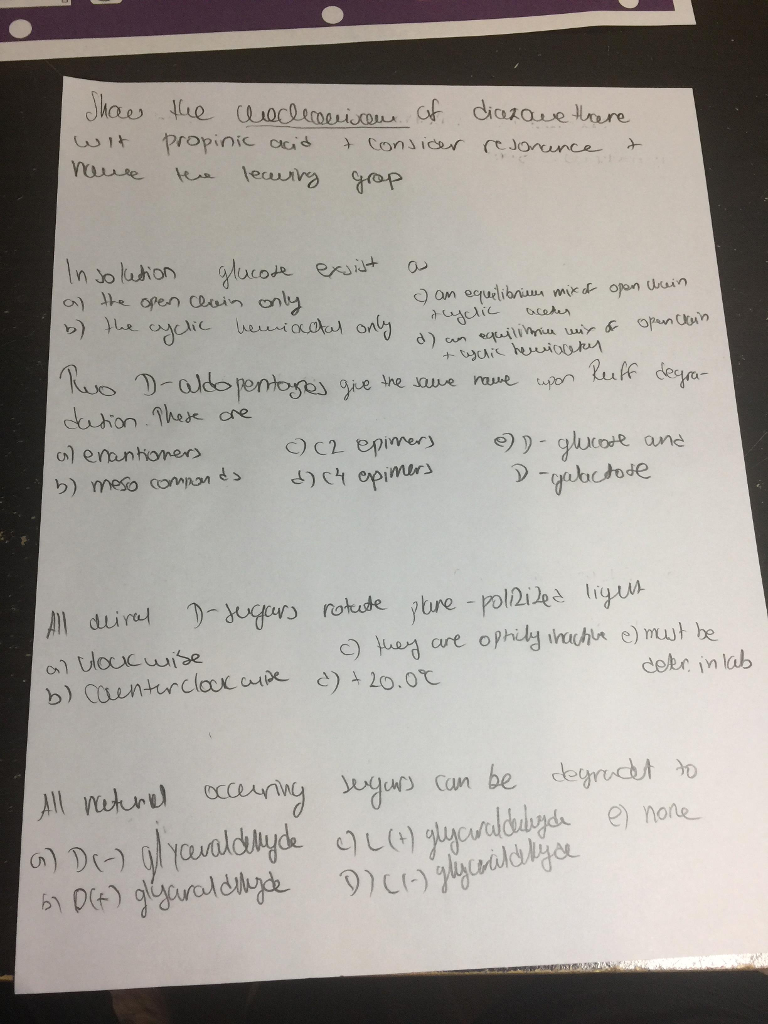 Show the mechanism of diazomethane
wit propinic acid + consider resonance +
name the leaving grop
In solution glucose exsist as
a) the open chain only
c) an equilibrium mix of open chain
+ cyclic acetal
b) the cyclic hemiacetal only
d) an equilibrium mix of open chain
+ cyclic hemiacetal
Two D-aldopentoses give the same name upon Ruff degra-
dation. These are
a) enantiomers
c) C2 epimers
e) D-glucose and
D-galactose
b) meso componds
d) C4 epimers
All chiral D-sugars rotate plane-polirized light
a) clockwise
c) they are opticly inactive
e) must be
deter. in lab
b) counterclockwise
d) + 20.0°C
All naturel occuring sugars can be degradet to
a) D(-) glyceraldehyde
c) L(+) glyceraldehyde
e) none
b) D(+) glyceraldehyde
D) L(-) glyceraldehyde